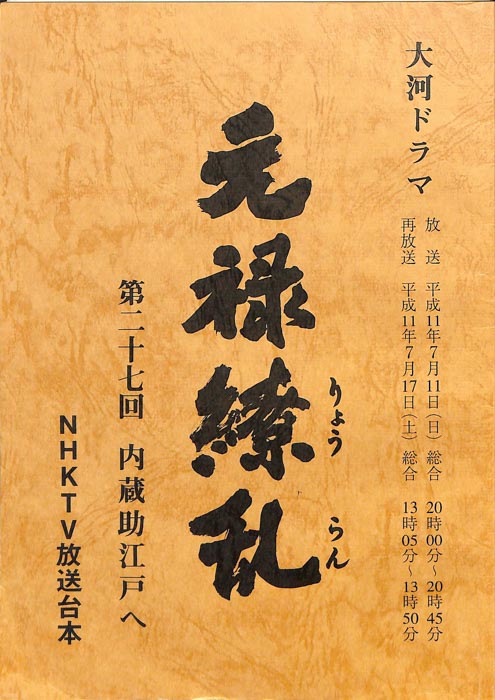 大河ドラマ
放送 平成11年7月11日(日) 総合 20時00分〜20時45分
再放送 平成11年7月17日(土) 総合 13時05分〜13時50分
元禄繚乱
りょう らん
第二十七回 内蔵助江戸へ
NHKTV放送台本